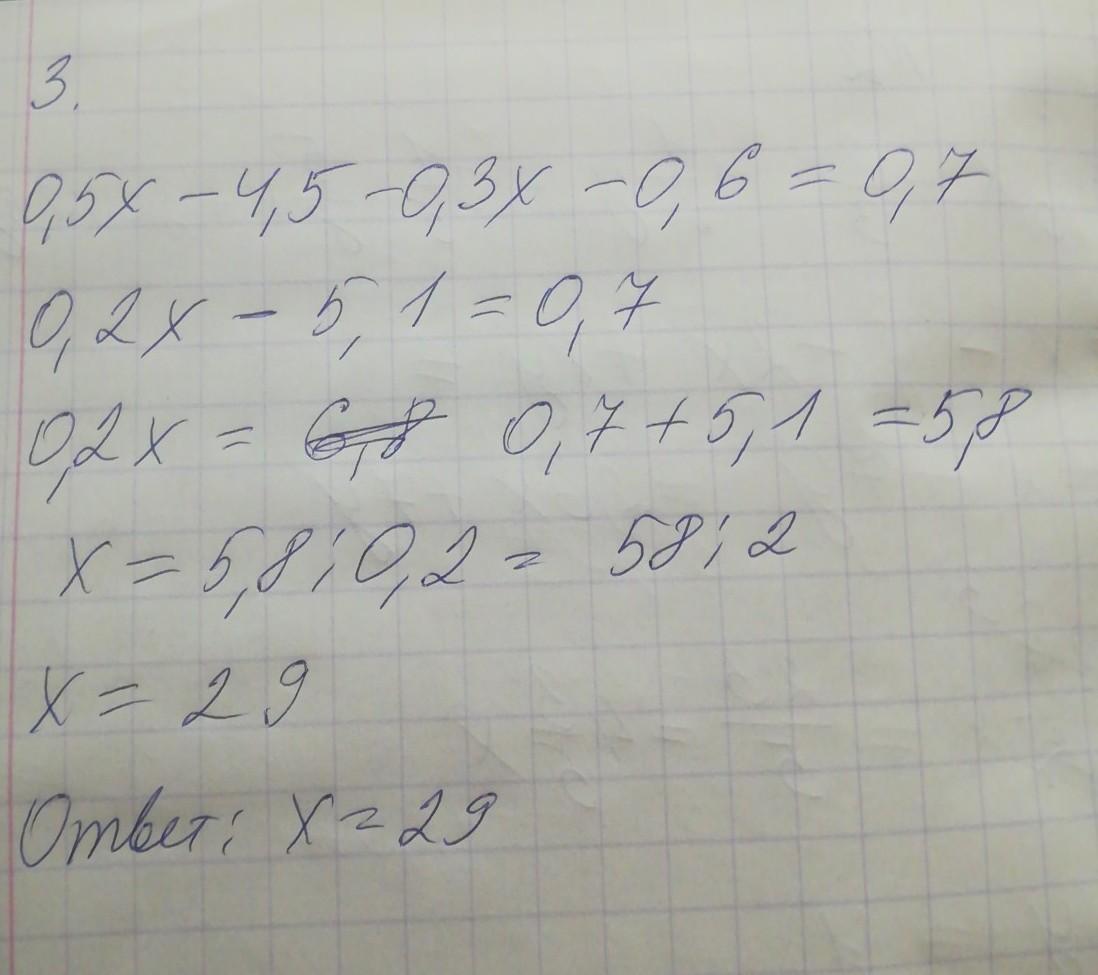 3.
0,5x - 4,5 - 0,3x - 0,6 = 0,7
0,2x - 5,1 = 0,7
0,2x = 6,8 0,7 + 5,1 = 5,8
x = 5,8 : 0,2 = 58 : 2
x = 29
Ответ: x = 29